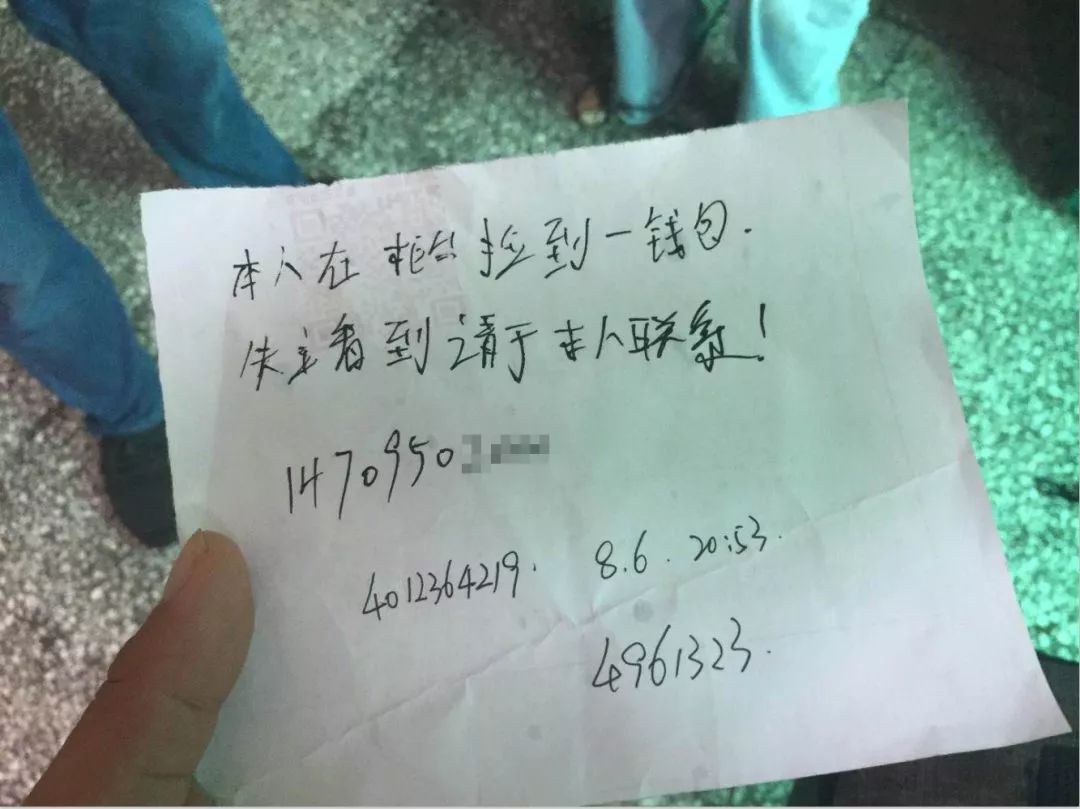 本人在柜台捡到一钱包.
失主看到请于本人联系!
1470950
4012364219. 8.6. 20:53.
4961323.